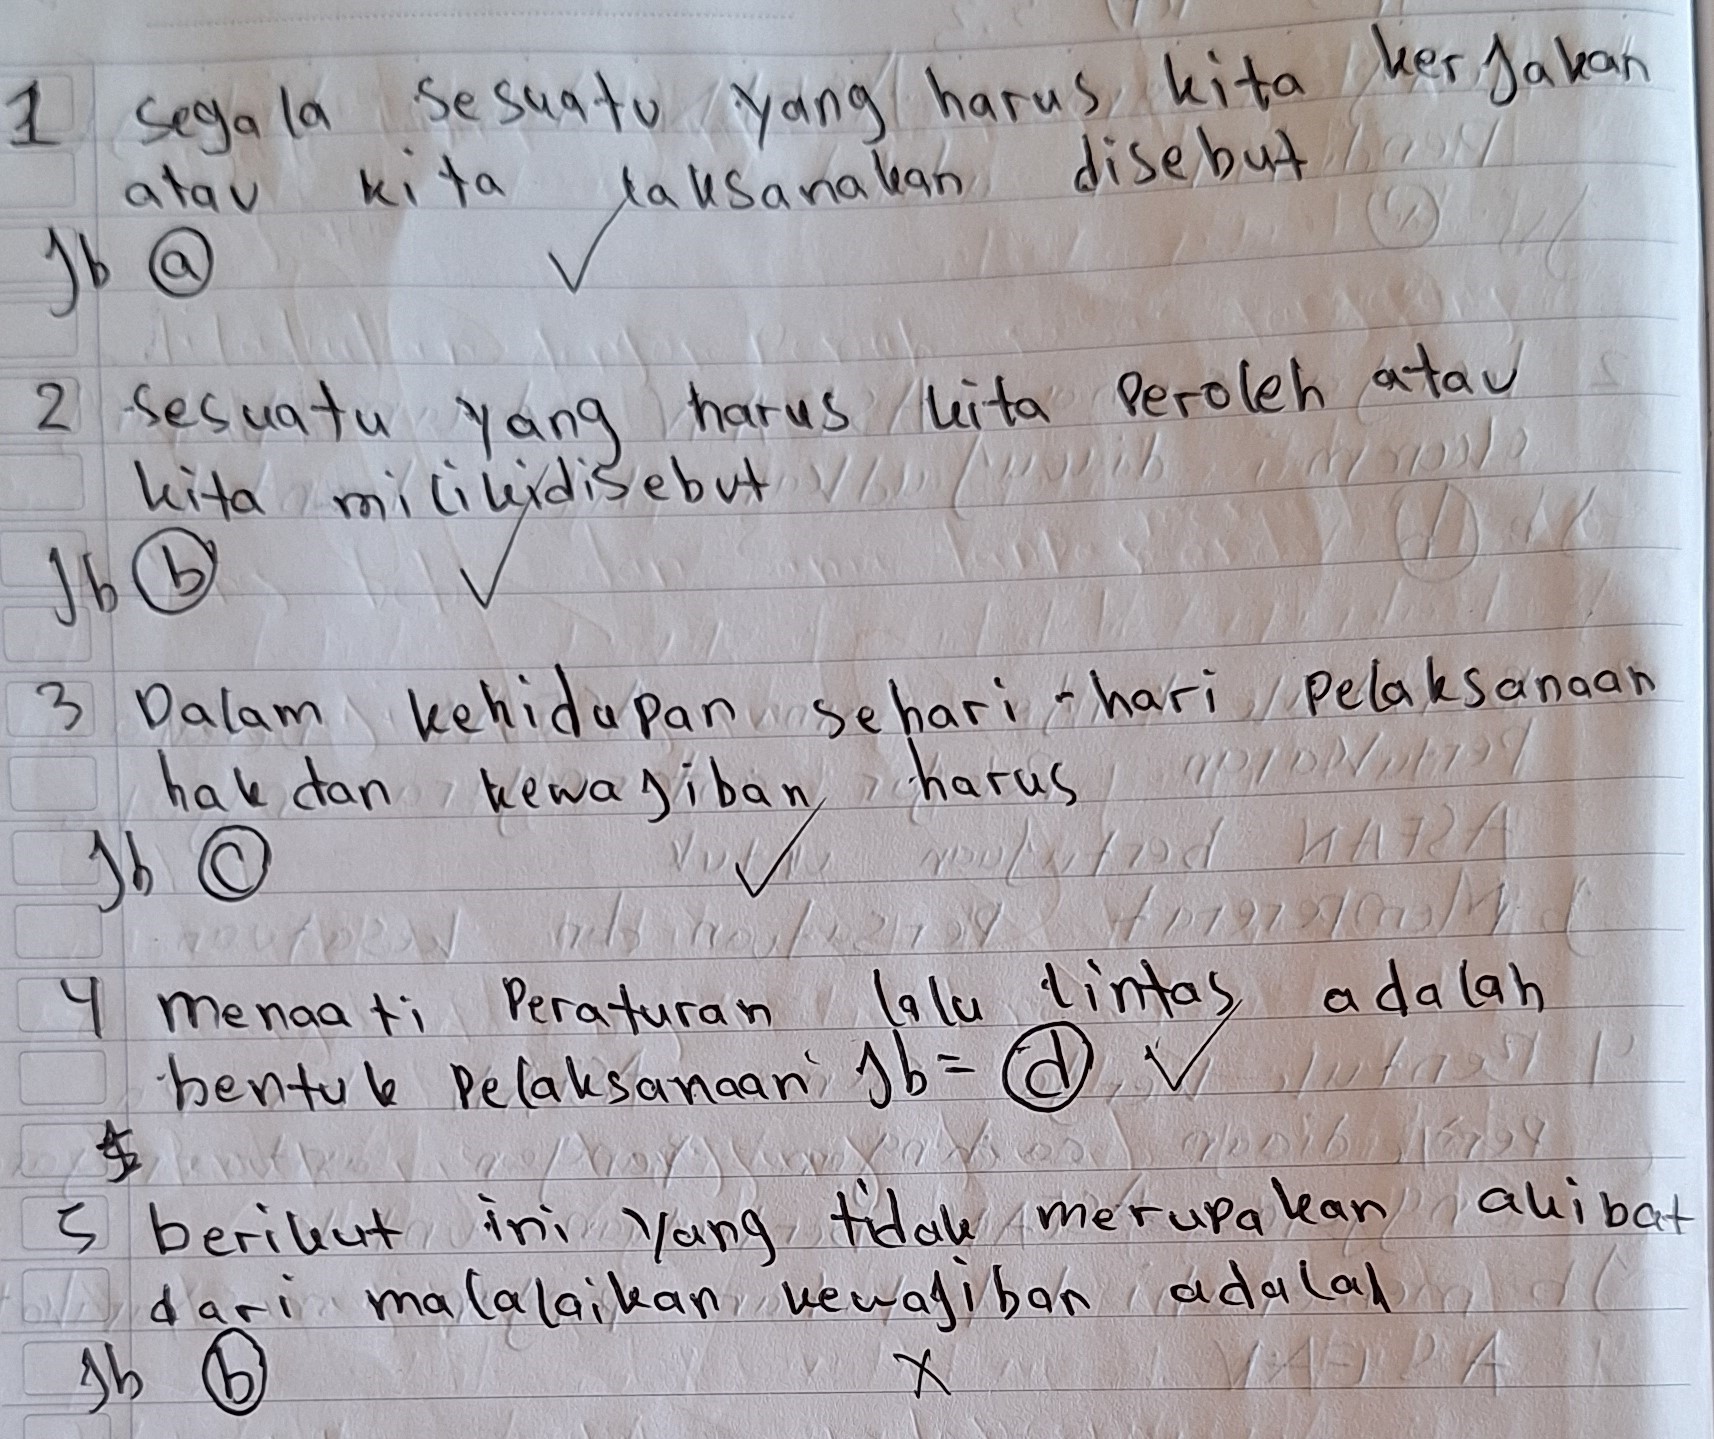 1 segala sesuatu yang harus kita kerjakan
atau kita laksanakan disebut
Jb a
2 sesuatu yang harus kita Peroleh atau
kita milikidisebut
Jb b
3 Dalam kehidupan sehari-hari Pelaksanaan
hak dan kewajiban harus
Jb c
4 menaati Peraturan lalu lintas adalah
bentuk Pelaksanaan Jb = d
5 berikut ini yang tidak merupakan akibat
dari malalaikan kewajiban adalah
Jb b